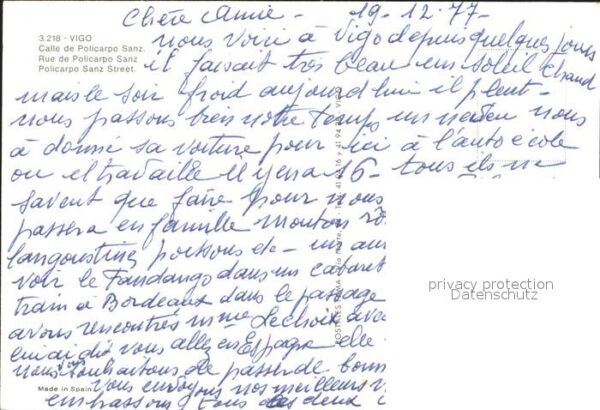 Chère Annie - 19-12-77-
3.218 - VIGO
Calle de Policarpo Sanz.
Rue de Policarpo Sanz
Policarpo Sanz Street.
nous voici à Vigo depuis quelques jours
il faisait très beau un soleil chaud
mais le soir froid aujourd'hui il pleut -
nous passons bien notre temps un neveu nous
à donné sa voiture pour ici à l'auto école
ou il travaille il y en a 6 - tous ils ne
savent que faire pour nous
passera en famille mouton
langoustines poissons etc - un
voir le Fandango dans un cabaret
train à Bordeaux dans le passage
avons rencontrés mme Lechoix avec
vous allez en Espagne elle
nous vous souhaitons de passer de bonn
vous envoyons nos meilleurs
embrassons tous les deux
Made in Spain
POSTALES
VIGO
privacy protection
Datenschutz